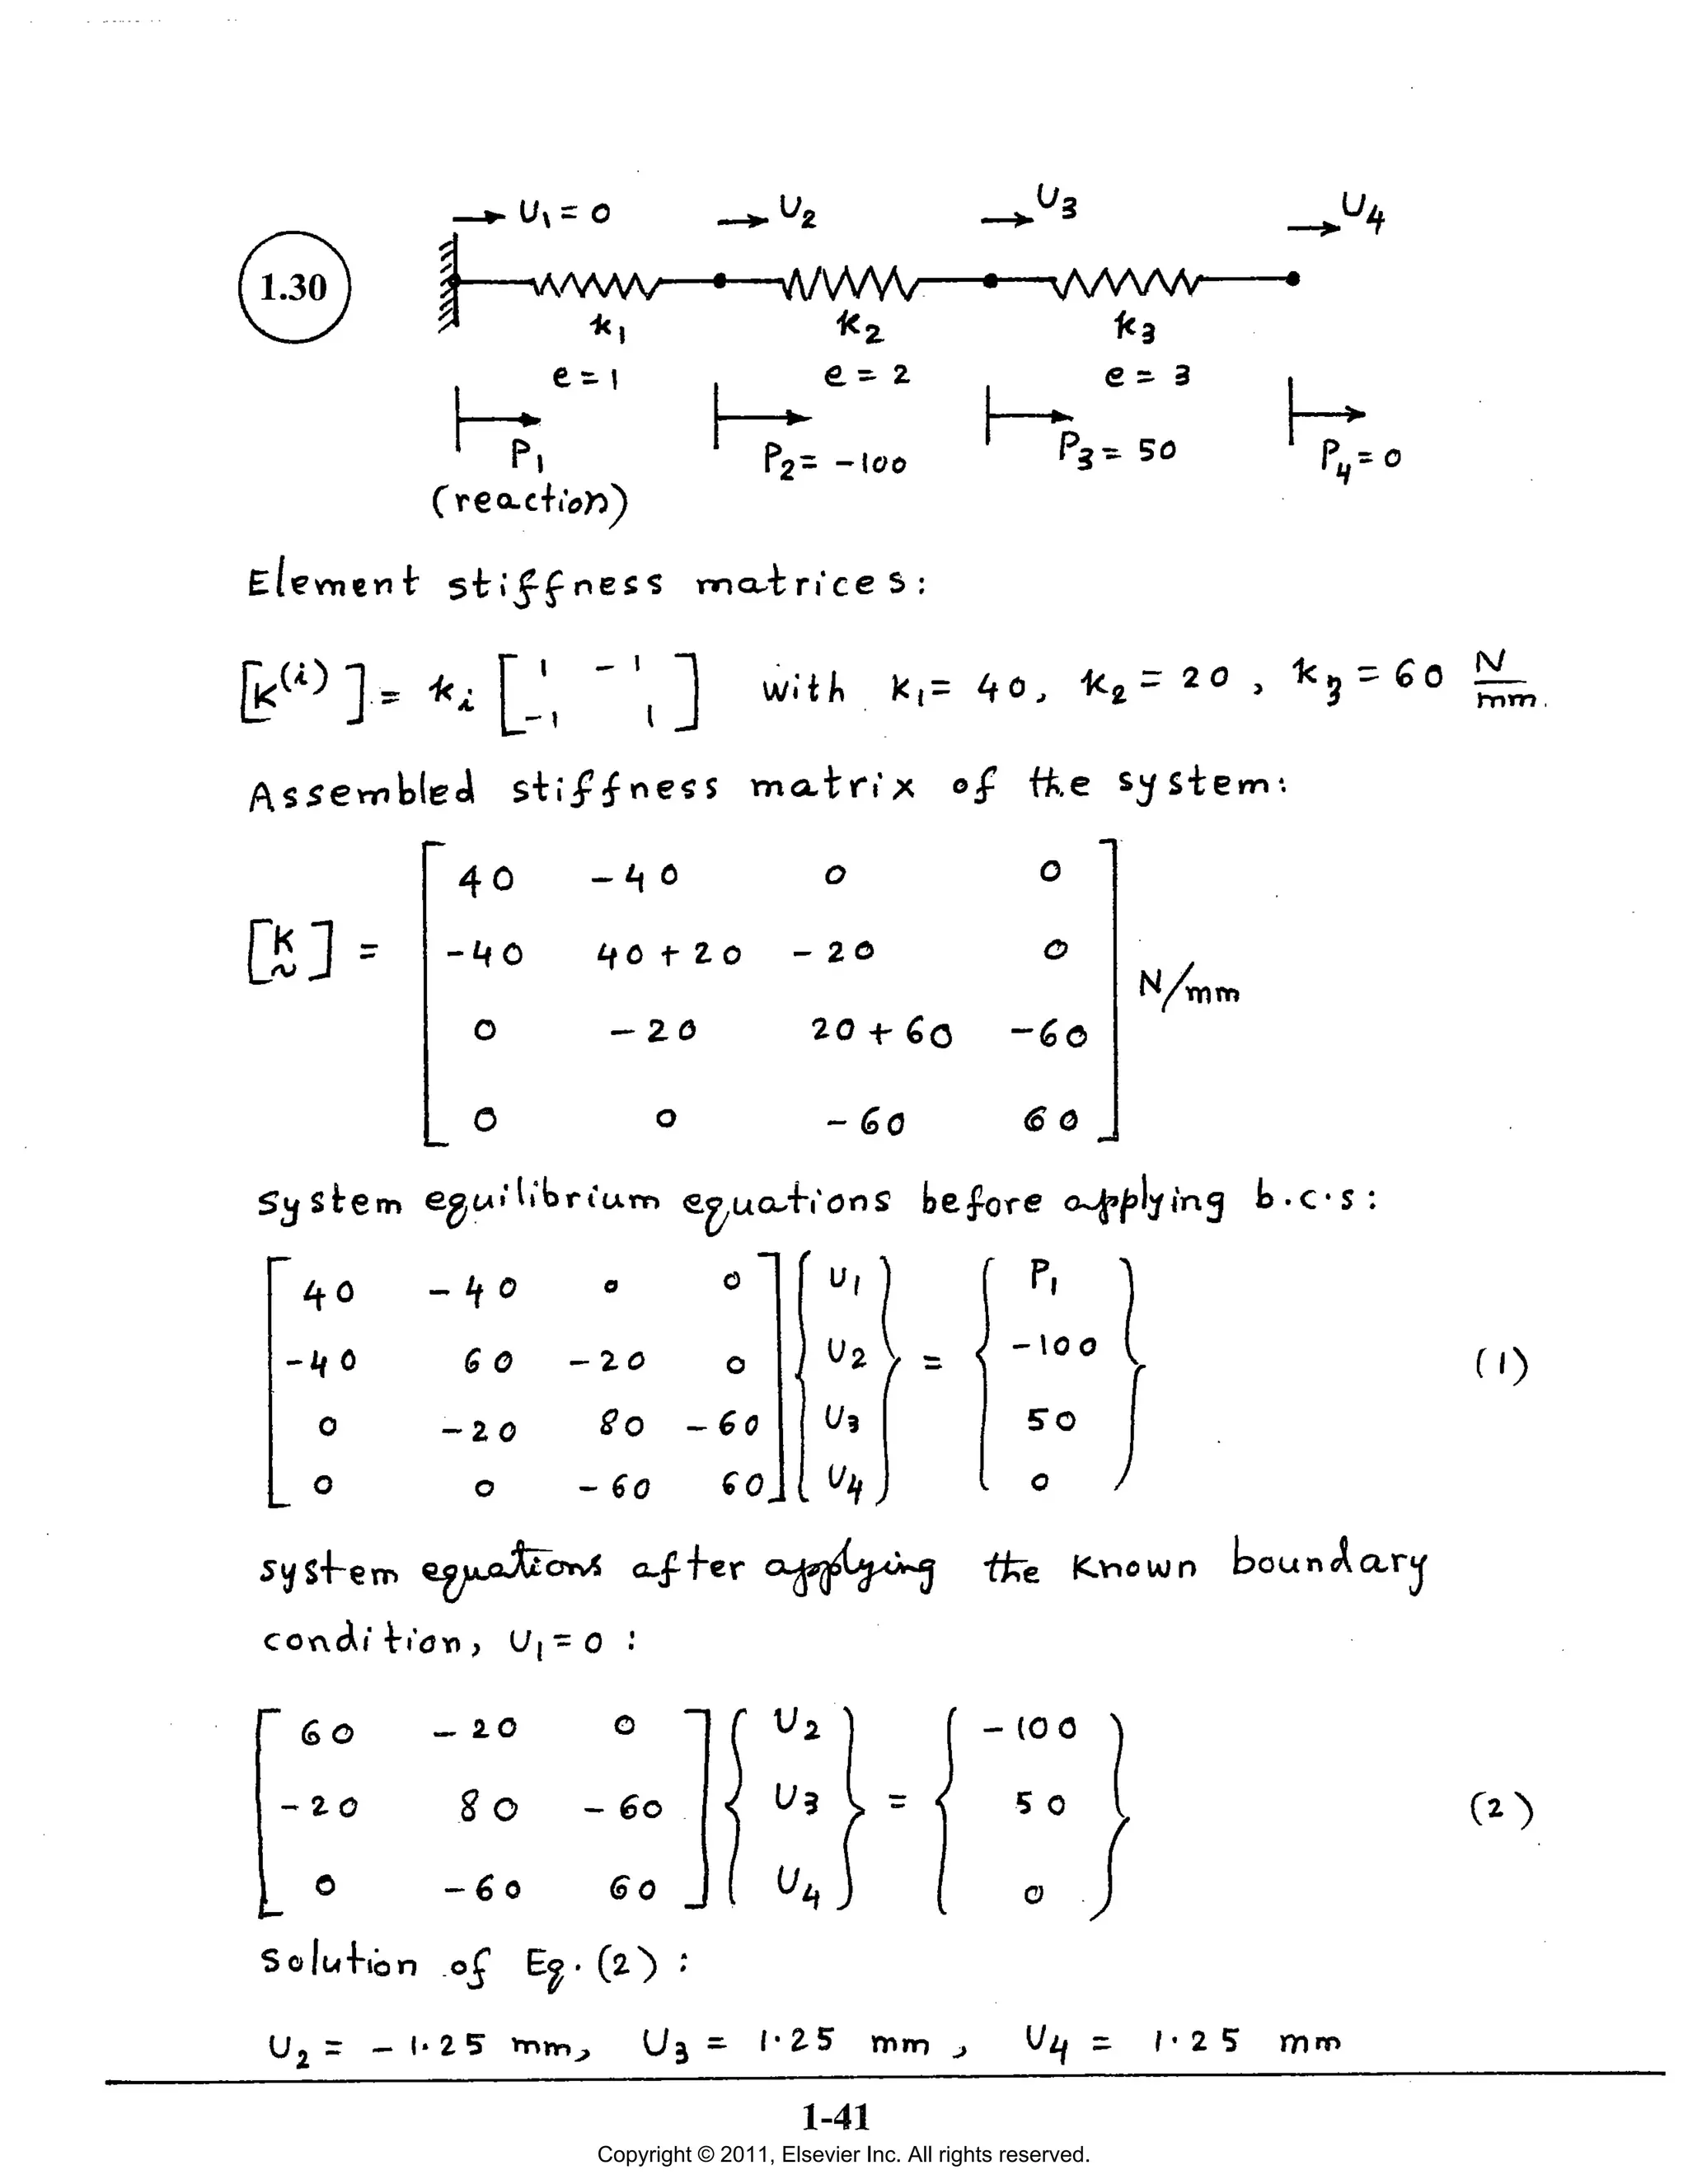 U₁ = 0 U₂ U₃ U₄
1.30
k₁ k₂ k₃
e = 1 e = 2 e = 3
P₁ P₂ = -100 P₃ = 50 P₄ = 0
(reaction)
Element stiffness matrices:
[K⁽ⁱ⁾] = kᵢ [1 -1
-1 1] with k₁ = 40, k₂ = 20, k₃ = 60 N/mm.
Assembled stiffness matrix of the system:
40 -40 0 0
[K] = -40 40+20 -20 0
N/mm
0 -20 20+60 -60
0 0 -60 60
System equilibrium equations before applying b.c.s:
40 -40 0 0 U₁ P₁
-40 60 -20 0 U₂ = -100 (1)
0 -20 80 -60 U₃ 50
0 0 -60 60 U₄ 0
System equations after applying the known boundary
condition, U₁ = 0 :
60 -20 0 U₂ -100
-20 80 -60 U₃ = 50 (2)
0 -60 60 U₄ 0
Solution of Eq. (2) :
U₂ = -1.25 mm, U₃ = 1.25 mm, U₄ = 1.25 mm
1-41
Copyright © 2011, Elsevier Inc. All rights reserved.